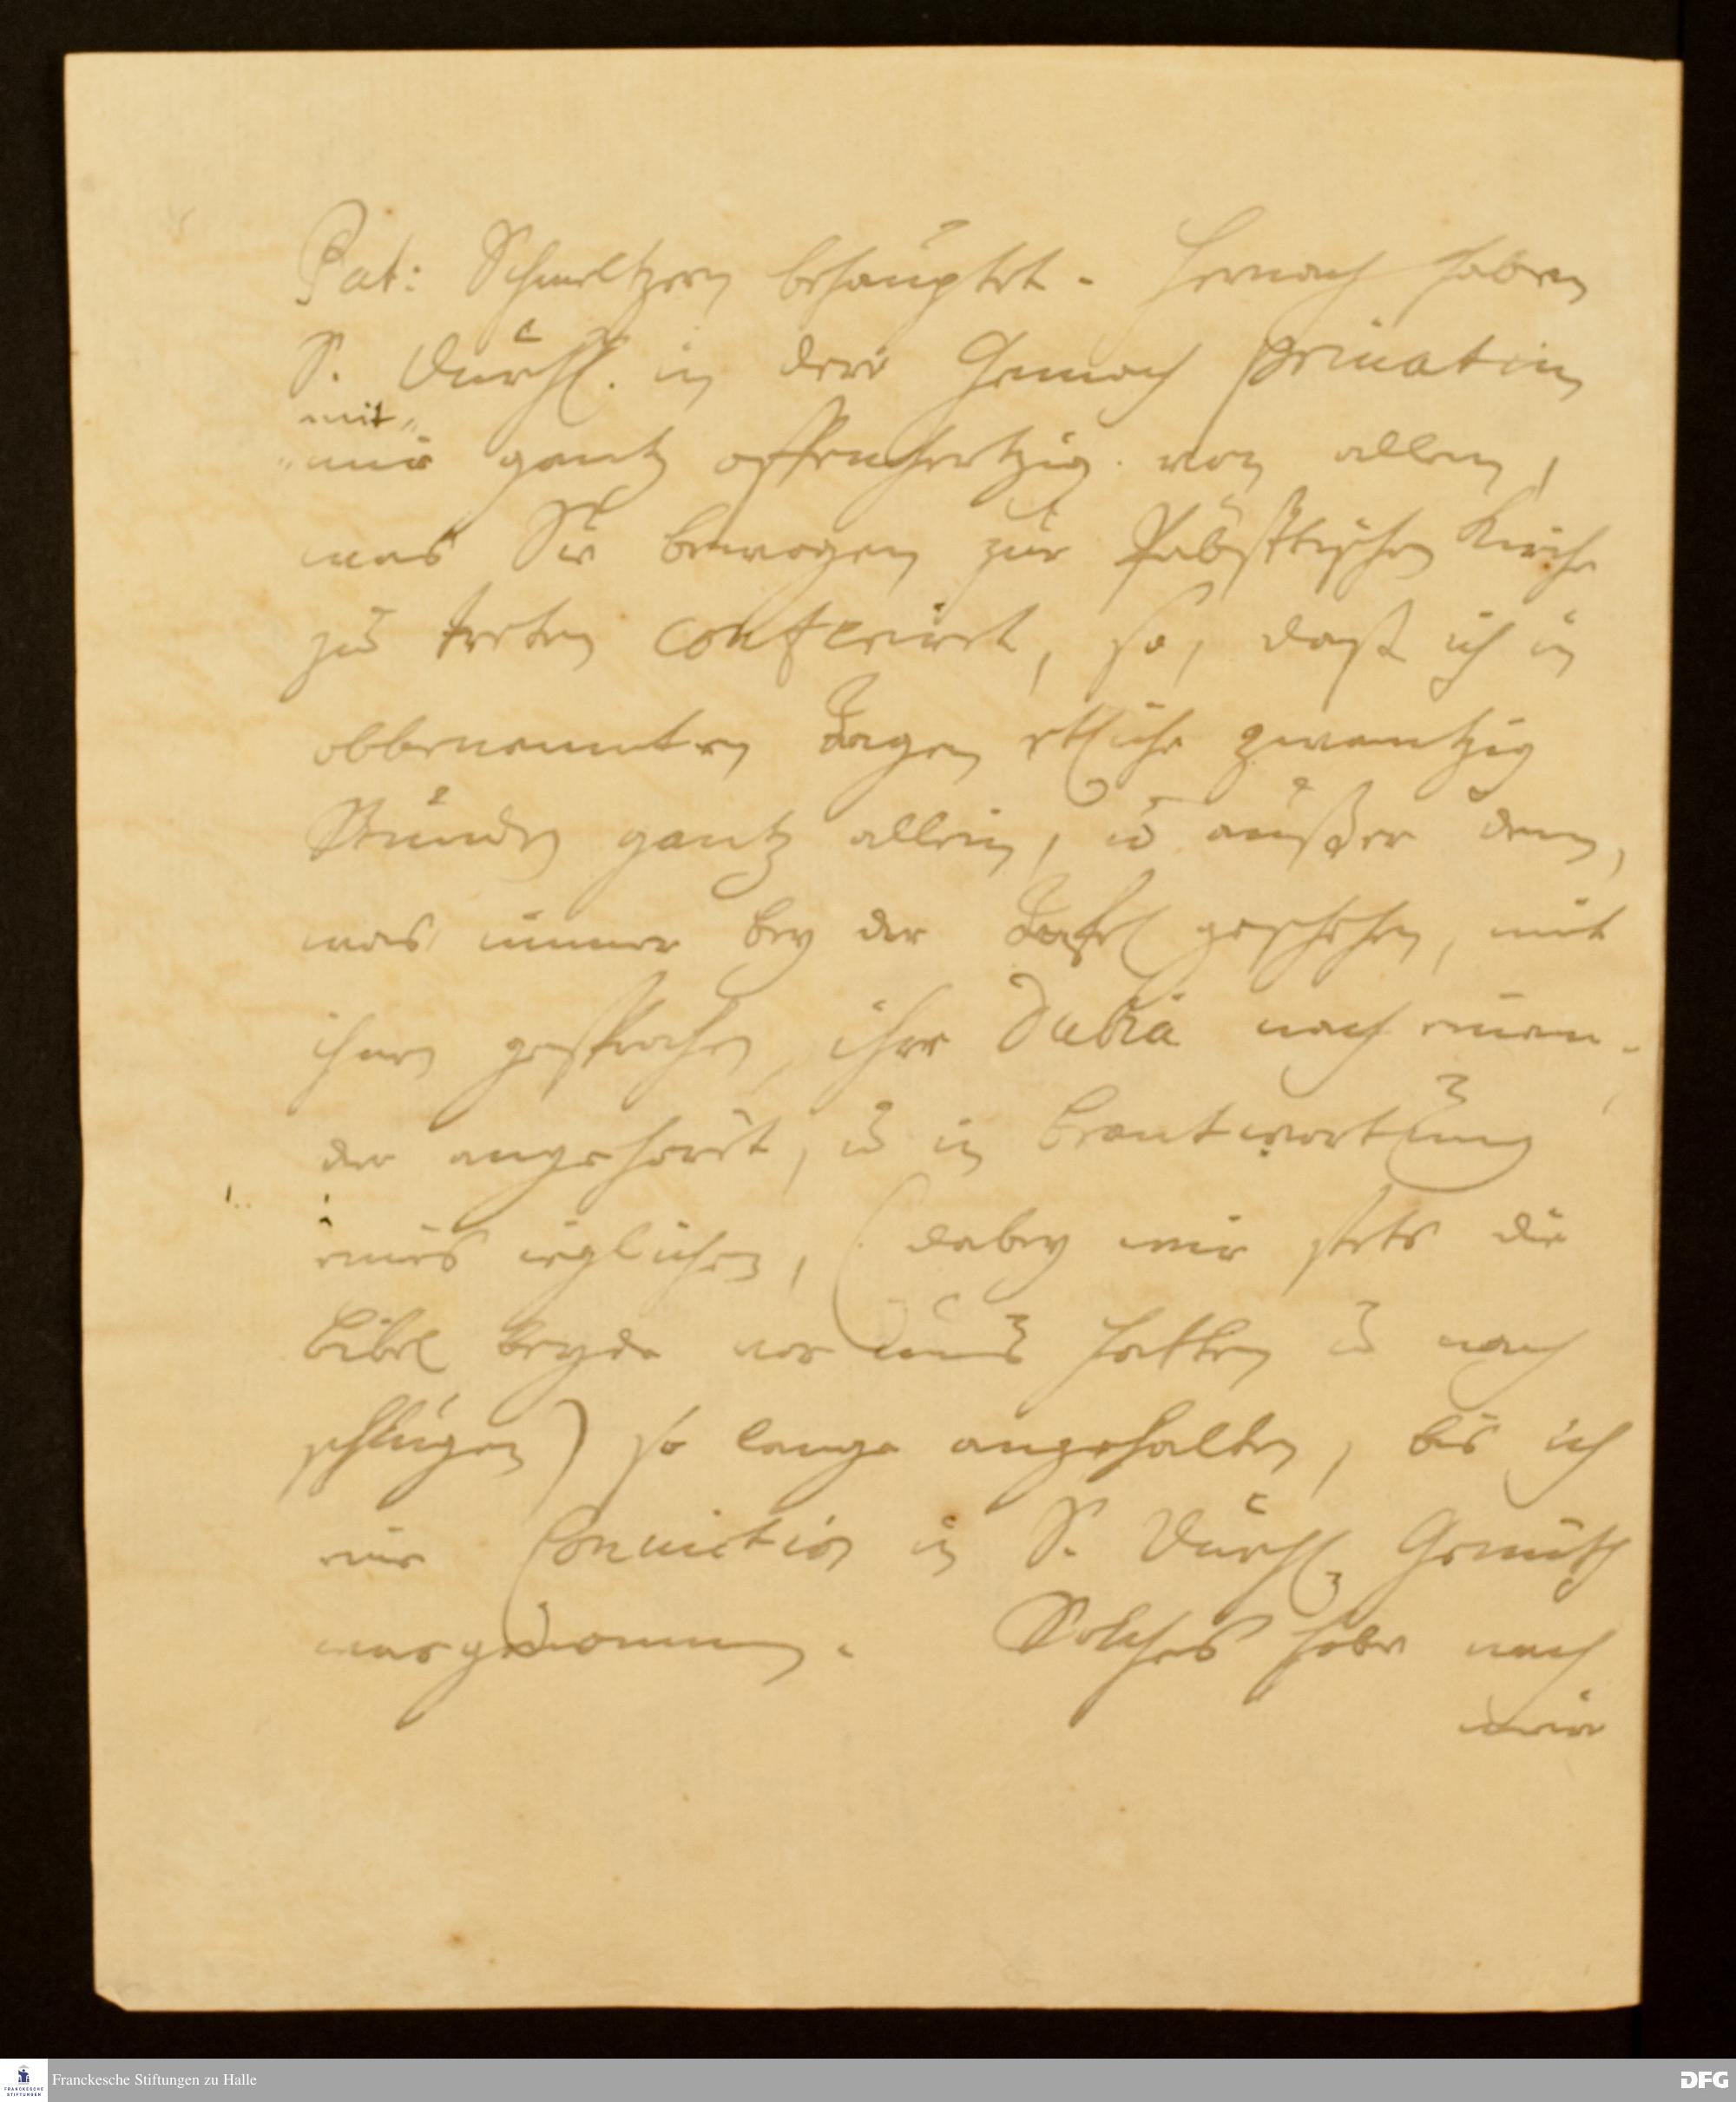 Pat: Schmeltzern behauptet. Hernach haben
S. Durchl. in dero Gemach privatim
mit
mir gantz offenhertzig von allem,
was Sie bewogen zur Päbstischen Kirche
zu treten conferiret, so, daß ich in
obbenennten Tagen etliche zwantzig
Stunden gantz allein, u. außer dem,
was immer bey der Tafel geschehen, mit
ihnen gesprochen, ihre Dubia nach einan-
der angehöret, u. in beantwortung
eines ieglichen, (dabey wir stets die
Bibel beyde vor uns hatten u. nach
schlugen) so lange angehalten, bis ich
eine Conviction in S. Durchl. Gemüth
wargenommen. Solches habe nach
mir
Franckesche Stiftungen zu Halle
DFG